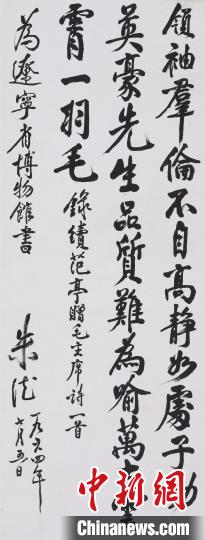 領袖羣倫不自高静如處子動
英豪先生品質難為喻萬古雲
霄一羽毛
錄續范亭贈毛主席詩一首
為遼寧省博物館書
朱德
一九六四年
七月五日
中新網
www.
Chinanews.com